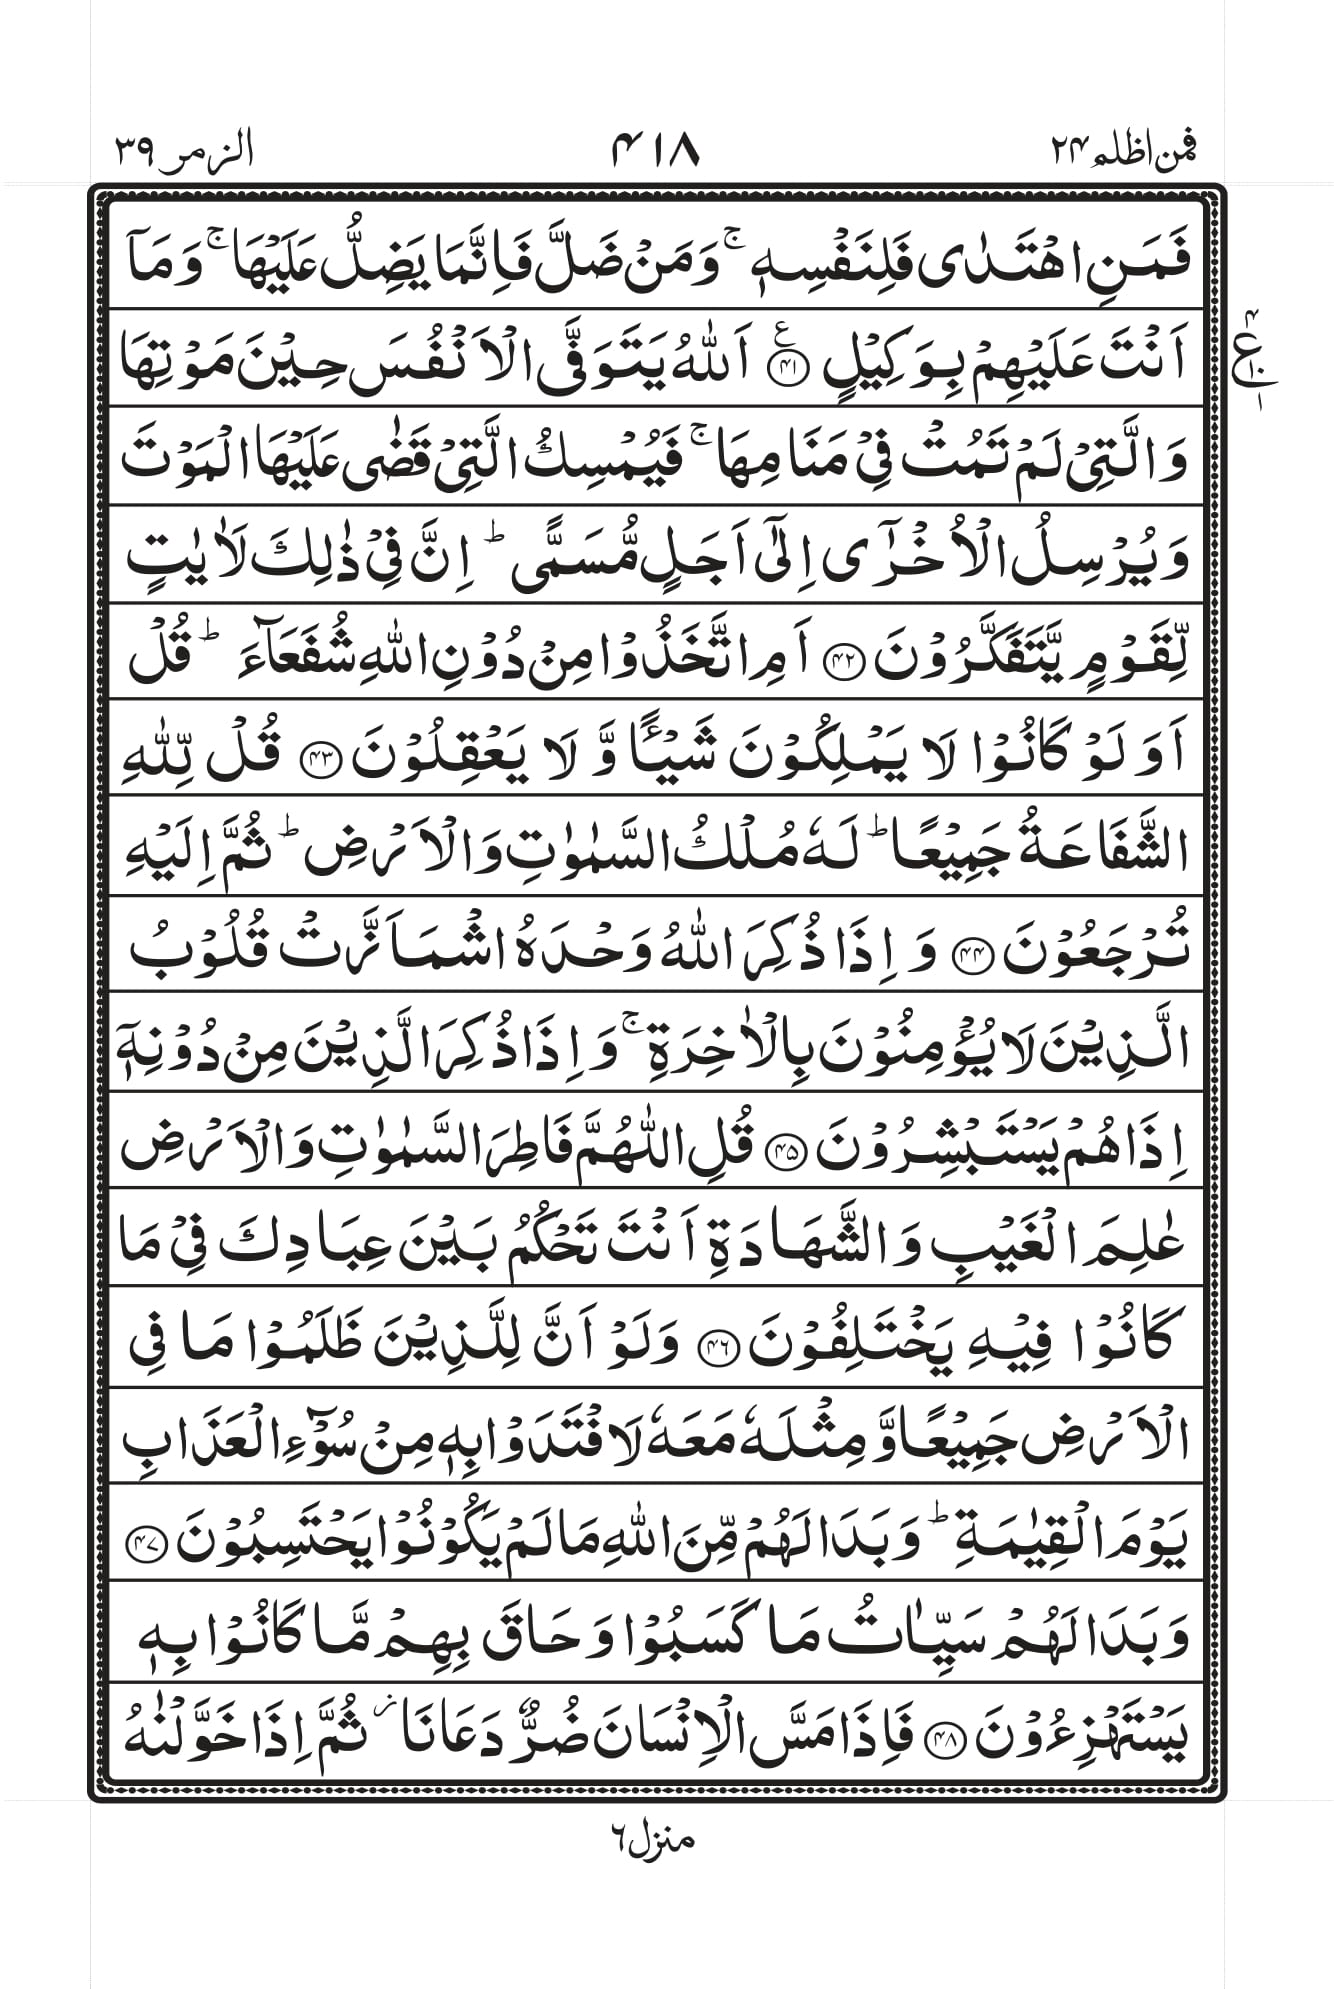 فمن اظلم ۲۴
۴۱۸
الزمر ۳۹
فَمَنِ اهۡتَدٰى فَلِنَفۡسِهٖ ۚ وَمَنۡ ضَلَّ فَاِنَّمَا يَضِلُّ عَلَيۡهَا ۚ وَمَاۤ
اَنۡتَ عَلَيۡهِمۡ بِوَكِيۡلٍ ﴿۴۱﴾ ع اَللّٰهُ يَتَوَفَّى الۡاَنۡفُسَ حِيۡنَ مَوۡتِهَا
وَالَّتِىۡ لَمۡ تَمُتۡ فِىۡ مَنَامِهَا ۚ فَيُمۡسِكُ الَّتِىۡ قَضٰى عَلَيۡهَا الۡمَوۡتَ
وَيُرۡسِلُ الۡاُخۡرٰٓى اِلٰٓى اَجَلٍ مُّسَمًّى ؕ اِنَّ فِىۡ ذٰلِكَ لَاٰيٰتٍ
لِّقَوۡمٍ يَّتَفَكَّرُوۡنَ ﴿۴۲﴾ اَمِ اتَّخَذُوۡا مِنۡ دُوۡنِ اللّٰهِ شُفَعَآءَ ؕ قُلۡ
اَوَلَوۡ كَانُوۡا لَا يَمۡلِكُوۡنَ شَيۡـًٔا وَّ لَا يَعۡقِلُوۡنَ ﴿۴۳﴾ قُلْ لِّلّٰهِ
الشَّفَاعَةُ جَمِيۡعًا ؕ لَهٗ مُلۡكُ السَّمٰوٰتِ وَالۡاَرۡضِ ؕ ثُمَّ اِلَيۡهِ
تُرۡجَعُوۡنَ ﴿۴۴﴾ وَ اِذَا ذُكِرَ اللّٰهُ وَحۡدَهُ اشۡمَاَزَّتۡ قُلُوۡبُ
الَّذِيۡنَ لَا يُؤۡمِنُوۡنَ بِالۡاٰخِرَةِ ۚ وَ اِذَا ذُكِرَ الَّذِيۡنَ مِنۡ دُوۡنِهٖۤ
اِذَا هُمۡ يَسۡتَبۡشِرُوۡنَ ﴿۴۵﴾ قُلِ اللّٰهُمَّ فَاطِرَ السَّمٰوٰتِ وَالۡاَرۡضِ
عٰلِمَ الۡغَيۡبِ وَالشَّهَادَةِ اَنۡتَ تَحۡكُمُ بَيۡنَ عِبَادِكَ فِىۡ مَا
كَانُوۡا فِيۡهِ يَخۡتَلِفُوۡنَ ﴿۴۶﴾ وَلَوۡ اَنَّ لِلَّذِيۡنَ ظَلَمُوۡا مَا فِى
الۡاَرۡضِ جَمِيۡعًا وَّمِثۡلَهٗ مَعَهٗ لَافۡتَدَوۡا بِهٖ مِنۡ سُوۡٓءِ الۡعَذَابِ
يَوۡمَ الۡقِيٰمَةِ ؕ وَبَدَا لَهُمۡ مِّنَ اللّٰهِ مَا لَمۡ يَكُوۡنُوۡا يَحۡتَسِبُوۡنَ ﴿۴۷﴾
وَبَدَا لَهُمۡ سَيِّاٰتُ مَا كَسَبُوۡا وَحَاقَ بِهِمۡ مَّا كَانُوۡا بِهٖ
يَسۡتَهۡزِءُوۡنَ ﴿۴۸﴾ فَاِذَا مَسَّ الۡاِنۡسَانَ ضُرٌّ دَعَانَا ز ثُمَّ اِذَا خَوَّلۡنٰهُ
۴
ع ۱۰
۱
منزل ۶